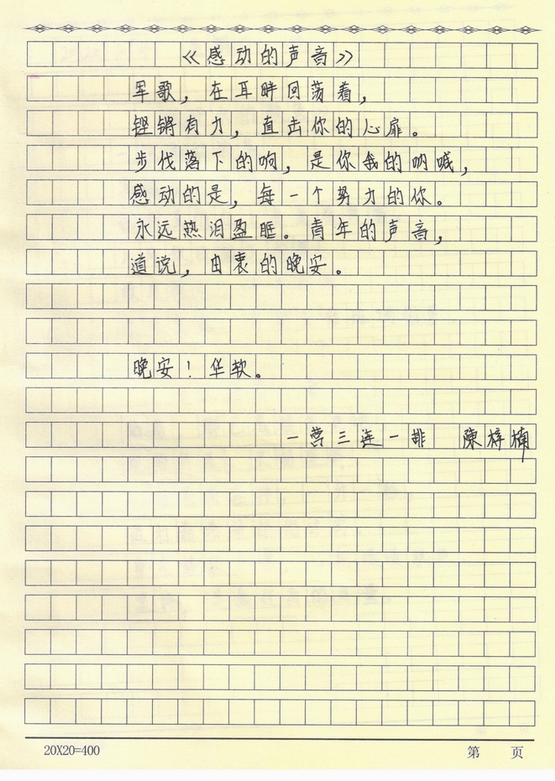 《感动的声音》
军歌，在耳畔回荡着，
铿锵有力，直击你的心扉。
步伐落下的响，是你我的呐喊，
感动的是，每一个努力的你。
永远热泪盈眶。青年的声音，
道说，由衷的晚安。
晚安！华软。
一营三连一排 陳梓楠
20X20=400 第 页